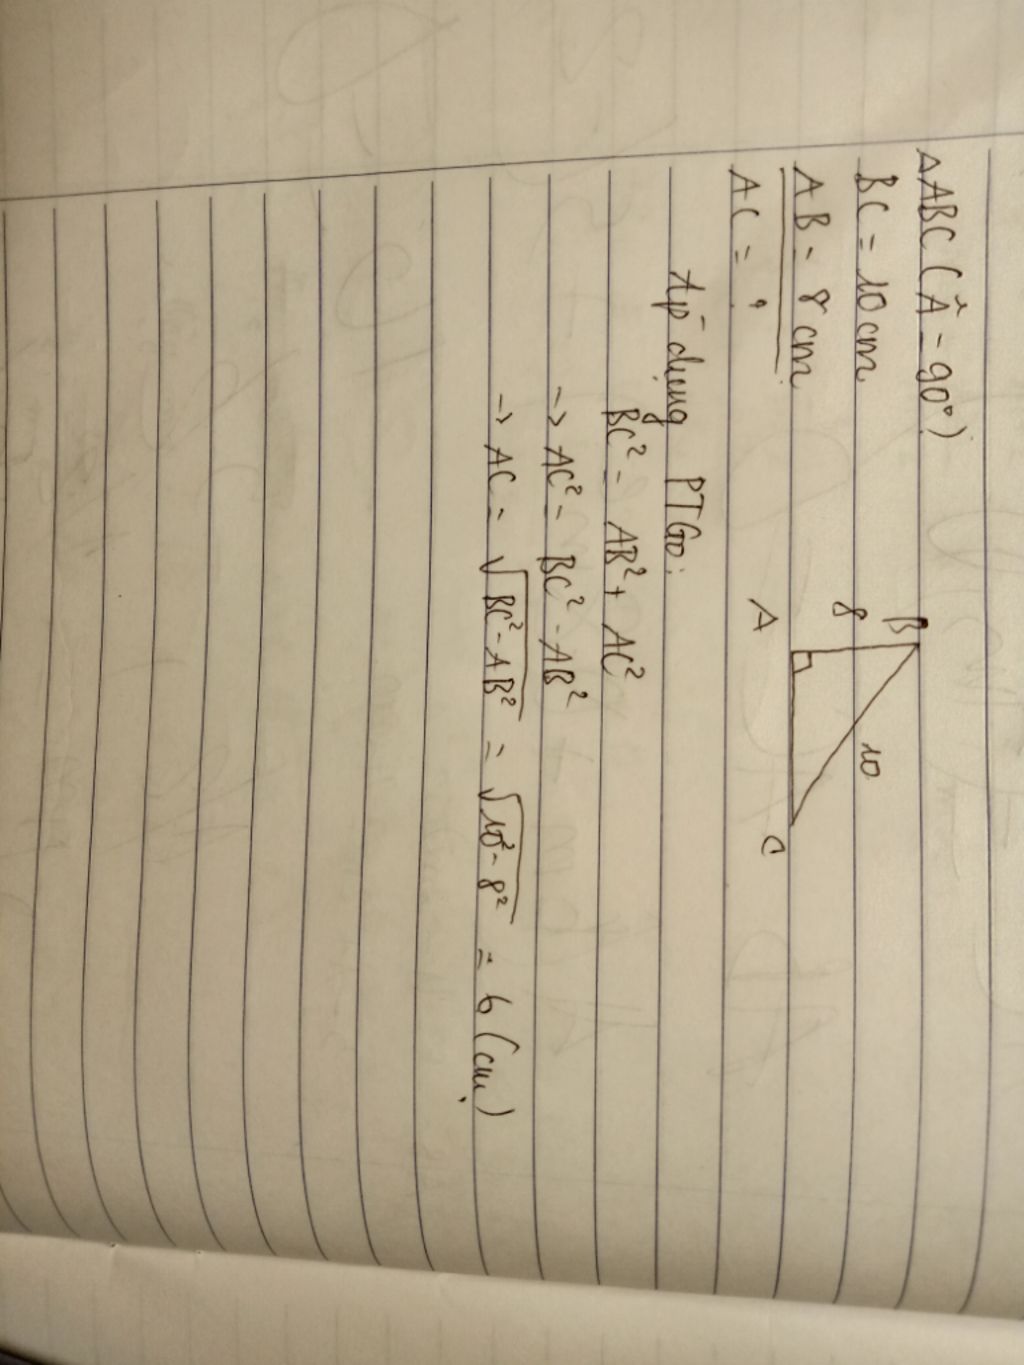 ΔABC (Â = 90°)
BC = 10 cm
AB = 8 cm
AC = ?
B
8
10
A
C
Áp dụng PTGo:
BC² = AB² + AC²
-> AC² = BC² - AB²
-> AC = √BC² - AB² = √10² - 8² = 6 (cm)